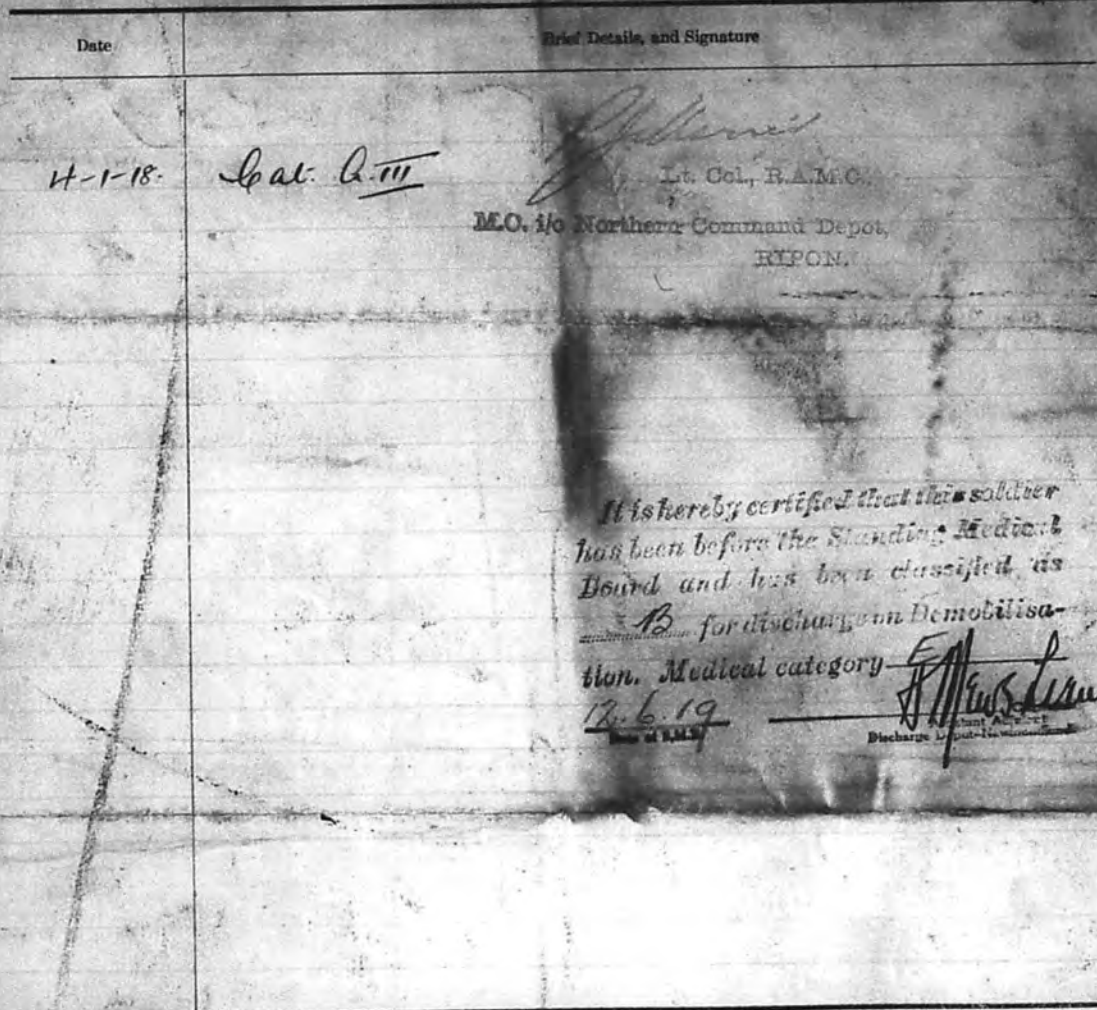 Date
Brief Details, and Signature
4-1-18. Cat. A. III
Lt. Col., R.A.M.C.
M.O. i/c Northern Command Depot,
RIPON.
It is hereby certified that this soldier
has been before the Standing Medical
Board and has been classified as
B for discharge on Demobilisa-
tion. Medical category E
12.6.19
Date of S.M.B.
Discharge Depot